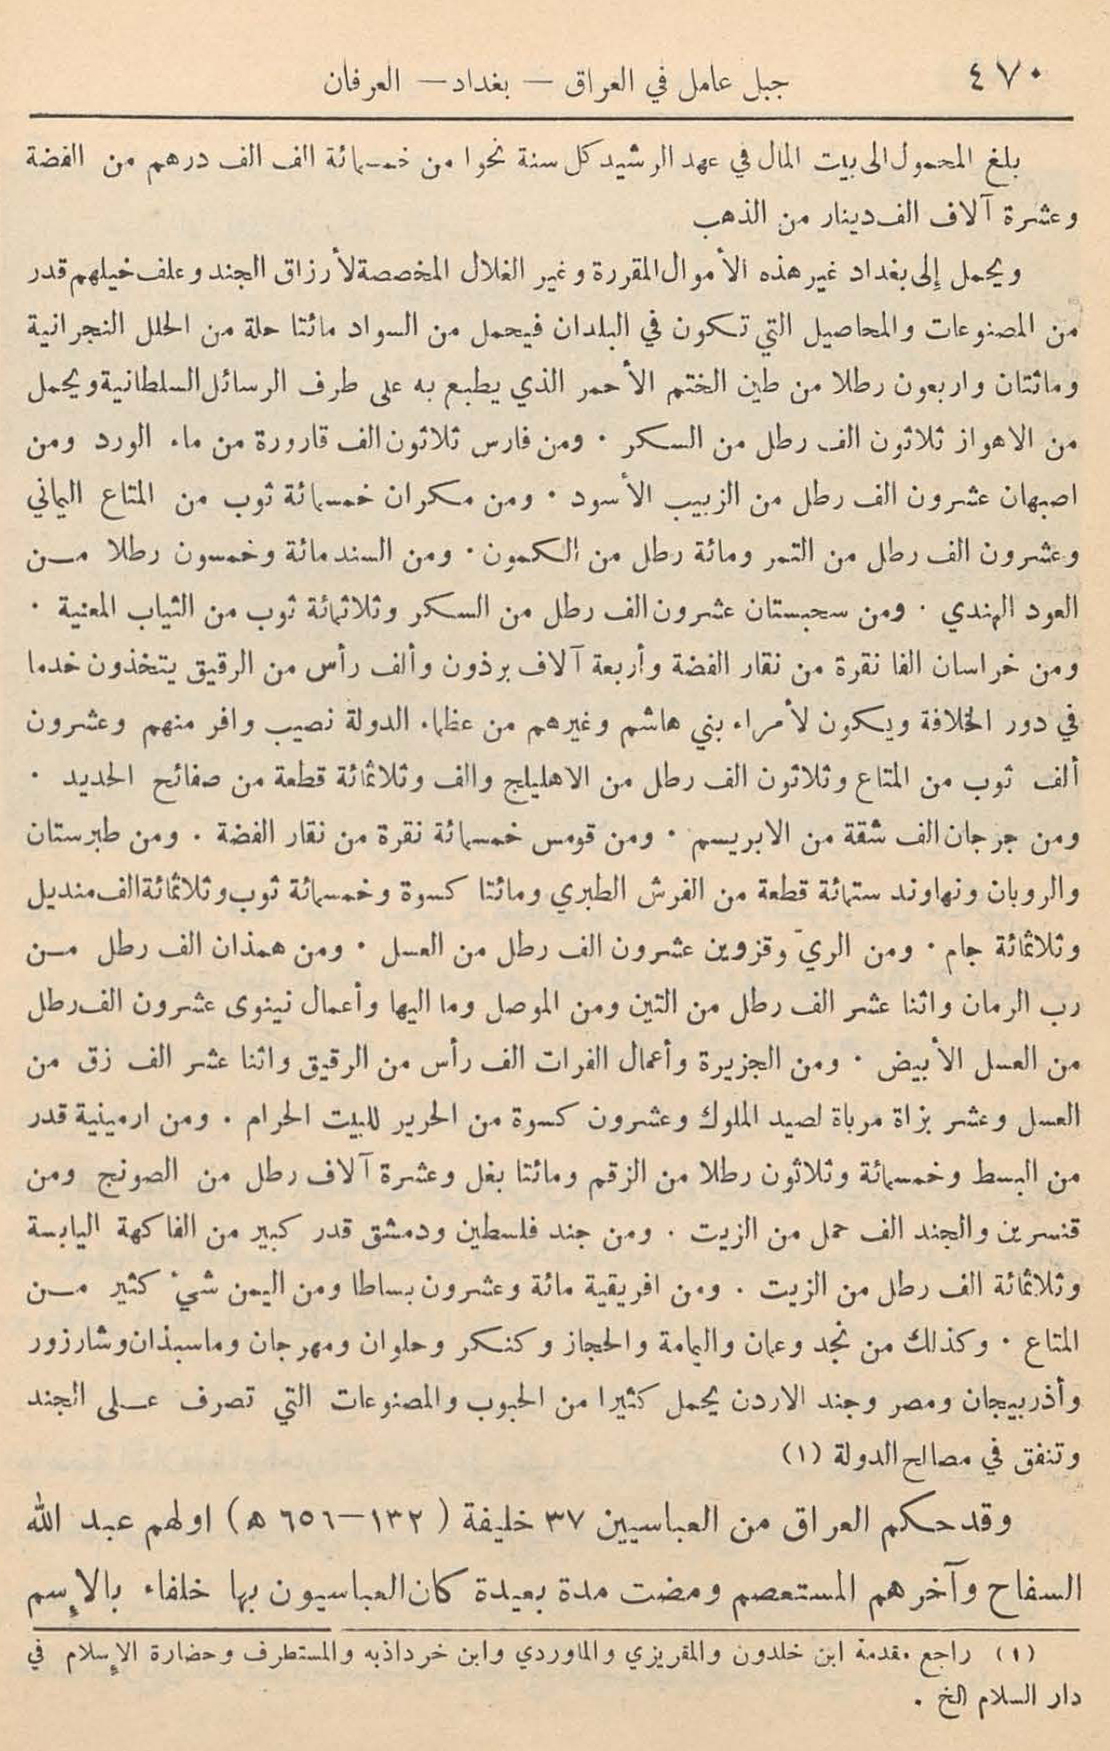 ٤٧٠
جبل عامل في العراق — بغداد — العرفان
بلغ المحمول الى بيت المال في عهد الرشيد كل سنة نحوا من خمسمائة الف الف درهم من الفضة
وعشرة آلاف الف دينار من الذهب
ويحمل إلى بغداد غير هذه الأموال المقررة وغير الغلال المخصصة لأرزاق الجند وعلف خيلهم قدر
من المصنوعات والمحاصيل التي تكون في البلدان فيحمل من السواد مائتا حلة من الحلل النجرانية
ومائتان واربعون رطلا من طين الختم الأحمر الذي يطبع به على طرف الرسائل السلطانية ويحمل
من الاهواز ثلاثون الف رطل من السكر · ومن فارس ثلاثون الف قارورة من ماء الورد ومن
اصبهان عشرون الف رطل من الزبيب الأسود · ومن مكران خمسمائة ثوب من المتاع اليماني
وعشرون الف رطل من التمر ومائة رطل من الكمون · ومن السند مائة وخمسون رطلا من
العود الهندي · ومن سجستان عشرون الف رطل من السكر وثلاثمائة ثوب من الثياب المعنية ·
ومن خراسان الفا نقرة من نقار الفضة وأربعة آلاف برذون وألف رأس من الرقيق يتخذون خدما
في دور الخلافة ويكون لأمراء بني هاشم وغيرهم من عظماء الدولة نصيب وافر منهم وعشرون
ألف ثوب من المتاع وثلاثون الف رطل من الاهليلج والف وثلاثمائة قطعة من صفائح الحديد ·
ومن جرجان الف شقة من الابريسم · ومن قومس خمسمائة نقرة من نقار الفضة . ومن طبرستان
والروبان ونهاوند ستمائة قطعة من الفرش الطبري ومائتا كسوة وخمسمائة ثوب وثلاثمائة الف منديل
وثلاثمائة جام · ومن الريّ وقزوين عشرون الف رطل من العسل · ومن همذان الف رطل من
رب الرمان واثنا عشر الف رطل من التين ومن الموصل وما اليها وأعمال نينوى عشرون الف رطل
من العسل الأبيض · ومن الجزيرة وأعمال الفرات الف رأس من الرقيق واثنا عشر الف زق من
العسل وعشر بزاة مرباة لصيد الملوك وعشرون كسوة من الحرير للبيت الحرام . ومن ارمينية قدر
من البسط وخمسمائة وثلاثون رطلا من الزقم ومائتا بغل وعشرة آلاف رطل من الصونج ومن
قنسرين والجند الف حمل من الزيت . ومن جند فلسطين ودمشق قدر كبير من الفاكهة اليابسة
وثلاثمائة الف رطل من الزيت . ومن افريقية مائة وعشرون بساطا ومن اليمن شيء كثير من
المتاع · وكذلك من نجد وعمان واليمامة والحجاز وكنكر وحلوان ومهرجان وماسبذان وشارزور
وأذربيجان ومصر وجند الاردن يحمل كثيرا من الحبوب والمصنوعات التي تصرف على الجند
وتنفق في مصالح الدولة (١)
وقد حكم العراق من العباسيين ٣٧ خليفة ( ١٣٢–٦٥٦ ه‍ ) اولهم عبد الله
السفاح وآخرهم المستعصم ومضت مدة بعيدة كان العباسيون بها خلفاء بالإسم
(١) راجع مقدمة ابن خلدون والمقريزي والماوردي وابن خرداذبه والمستطرف وحضارة الإسلام في
دار السلام الخ .